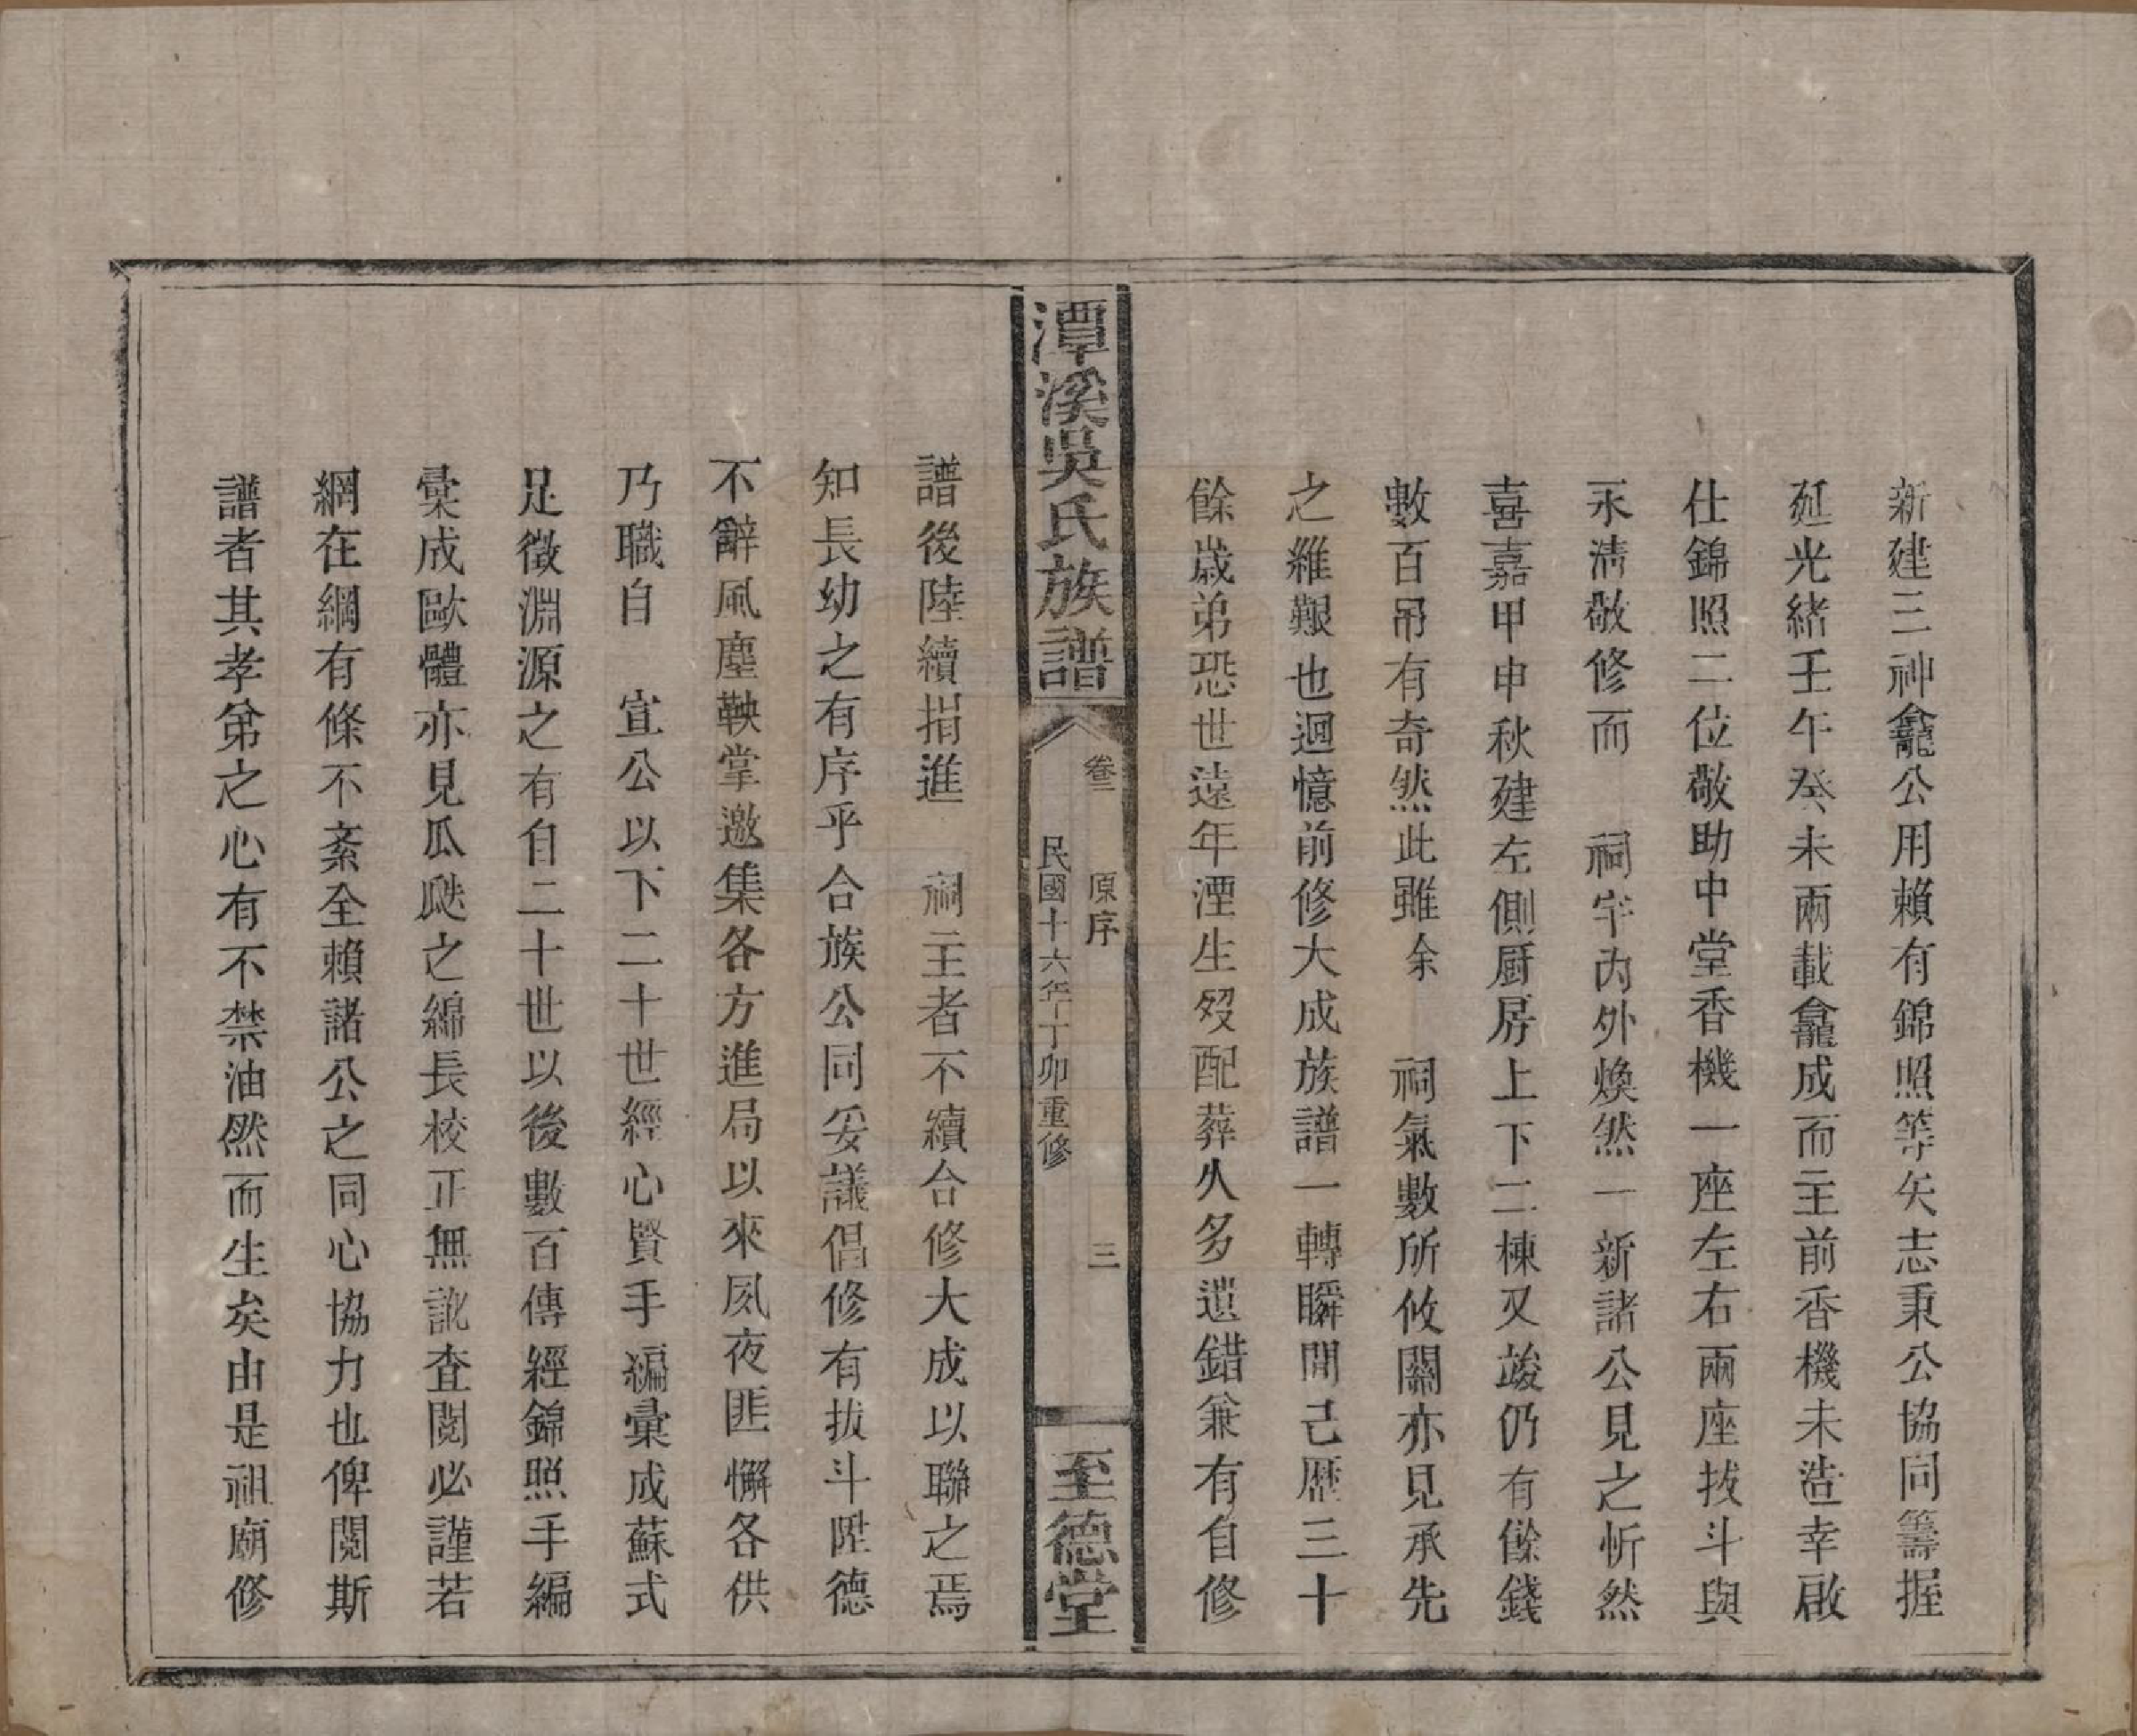 新建三神龕公用賴有錦照等矢志秉公協同籌握
延光緒壬午癸未兩載龕成而主前香機未造幸啟
仕錦照二位敬助中堂香機一座左右兩座拔斗與
永清敬修而 祠宇內外煥然一新諸公見之忻然
喜嘉甲申秋建左側厨房上下二棟又竣仍有餘錢
數百吊有奇然此雖余 祠氣數所攸關亦見承先
之維艱也迴憶前修大成族譜一轉瞬間己歷三十
餘歲弟恐世遠年湮生歿配葬火多遺錯兼有自修
潭溪吳氏族譜
卷一 原序 三
民國十六年丁卯重修
至德堂
譜後陸續捐進 祠主者不續合修大成以聯之焉
知長幼之有序乎合族公同妥議倡修有拔斗陞德
不辭風塵鞅掌邀集各方進局以來夙夜匪懈各供
乃職自 宣公以下二十世經心賢手編彙成蘇式
足徵淵源之有自二十世以後數百傳經錦照手編
彙成歐體亦見瓜瓞之綿長校正無訛查閱必謹若
網在綱有條不紊全賴諸公之同心協力也俾閱斯
譜者其孝弟之心有不禁油然而生矣由是祖廟修